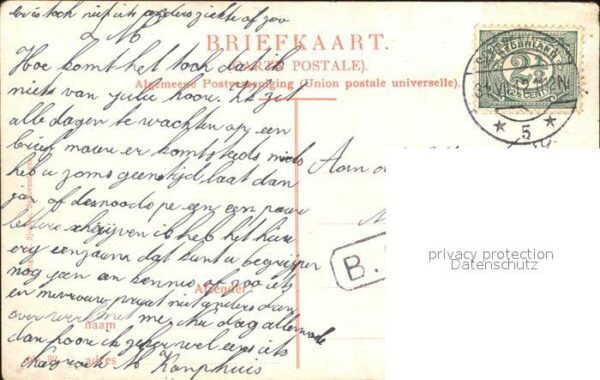 er is toch niets anders ziekte of zoo
L M
BRIEFKAART.
(CARTE POSTALE).
Algemeene Postvereeniging (Union postale universelle).
NEDERLAND
2½
CENT
5
Hoe komt het toch dat ik
niets van julie hoor. Ik zit
alle dagen te wachten op een
brief maar er komt steeds niets
heb u soms geen tijd laat dan
jan of desnoods pe een een paar
letters schrijven ik heb het hier
erg eenzaam dat kunt u begrijpen
nog geen en kennis of zoo iets
en mevrouw praat niet anders dan
over werk met me, nu dag allemaale
dan hoor ik zeker wel eens iets
dag M Kamphuis
Aan
B.
Afzender:
naam
adres
privacy protection
Datenschutz